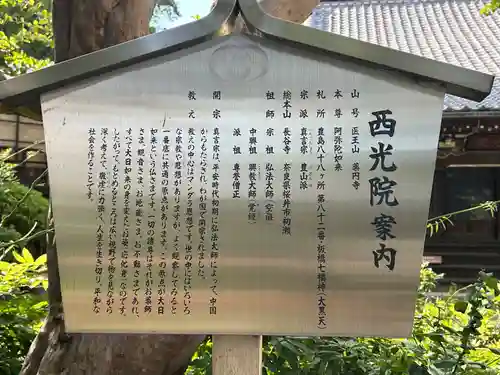 西光院案内
山号 医王山 薬円寺
本尊 阿弥陀如来
札所 豊島八十八ヶ所 第八十一番・板橋七福神(大黒天)
宗派 真言宗 豊山派
総本山 長谷寺 奈良県桜井市初瀬
宗祖 弘法大師(空海)
中興祖 興教大師(覚鑁)
派祖 専誉僧正
開宗 真言宗は、平安時代初期に弘法大師によって、中国
からもたらされ、わが国で開宗されました。
教え 教えの中心はマンダラ思想です。世の中にはいろいろ
な宗教や思想がありますが、よく観察してみると
一番底に共通の原点があります。この原点が大日
如来という仏さまです。一切の諸尊はそれがお薬師
さま、観音さま、お地蔵さま、お不動さまであれ、
すべて大日如来の姿を変えた応化身なのです。
したがって、もとめるところは広い視野で物を見ながら
深く考えて、職責に力強く、人生を生き切り、平和な
社会を作ることです。